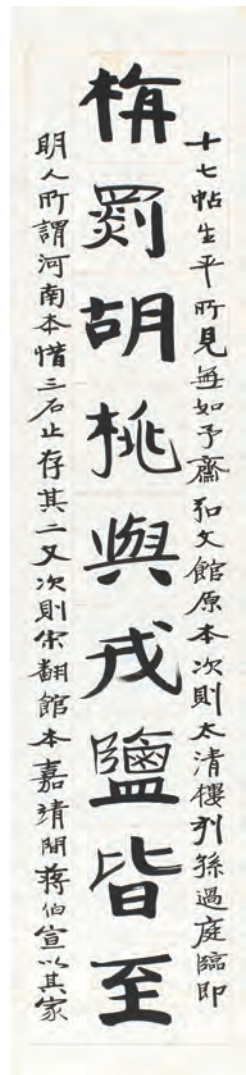 十七帖生平所見無如予齋弘文館原本次則太清樓列孫過庭臨即
栴罽胡桃與戎鹽皆至
明人所謂河南本惜三石止存其二又次則宋翻館本嘉靖間蔣伯宣以其家